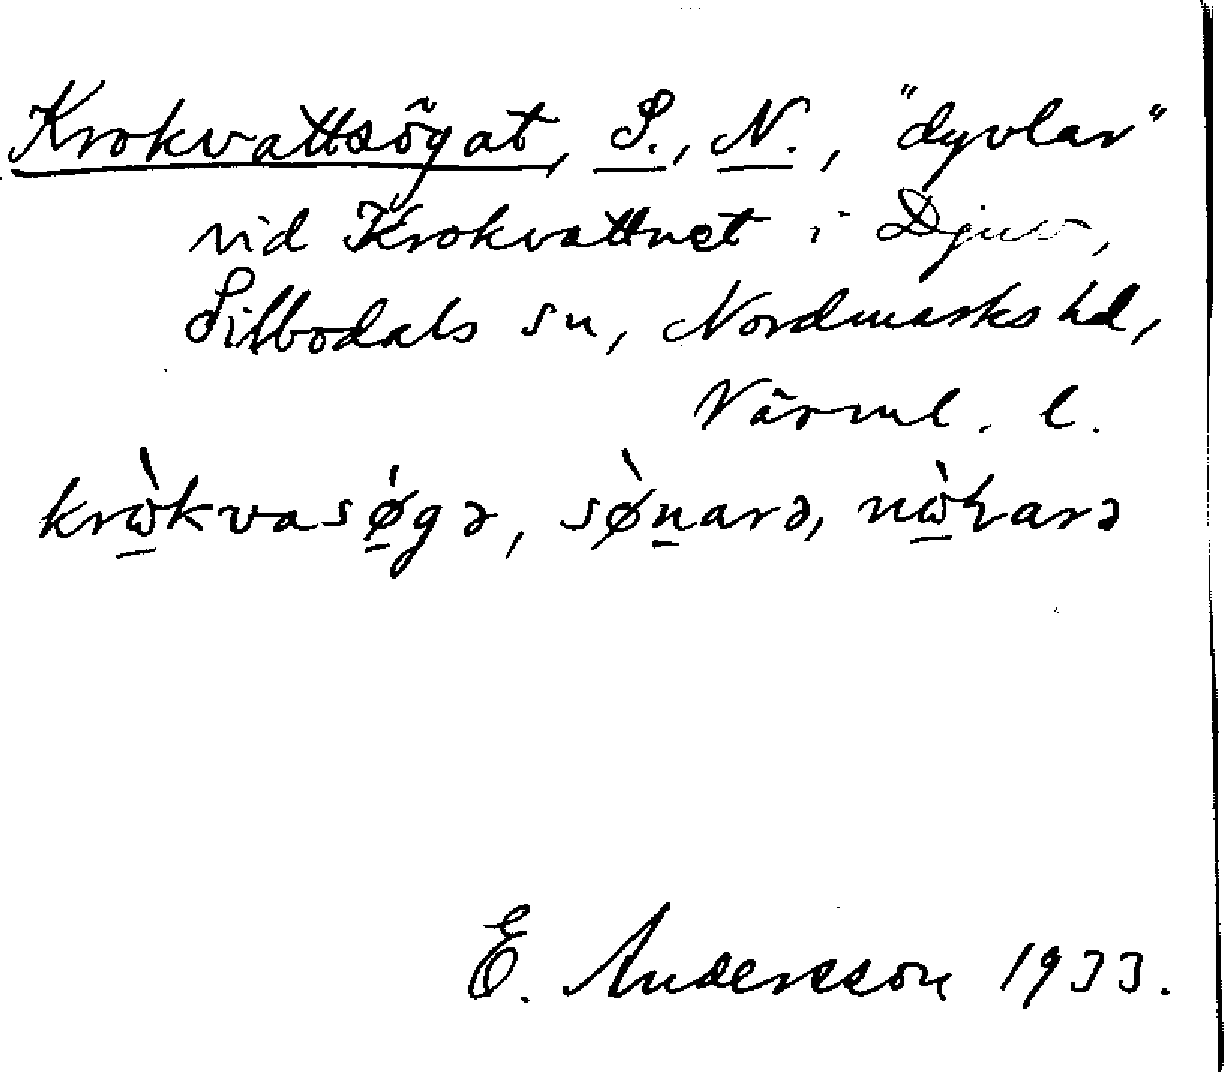 Krokvattsögat, S., N., "dyvlar"
vid Krokvattnet i Djuv,
Silbodals sn, Nordmarks hd,
Värml. l.
krὼkvasǿgə, sø̀narə, nὼɽarə
E. Andersson 1933.